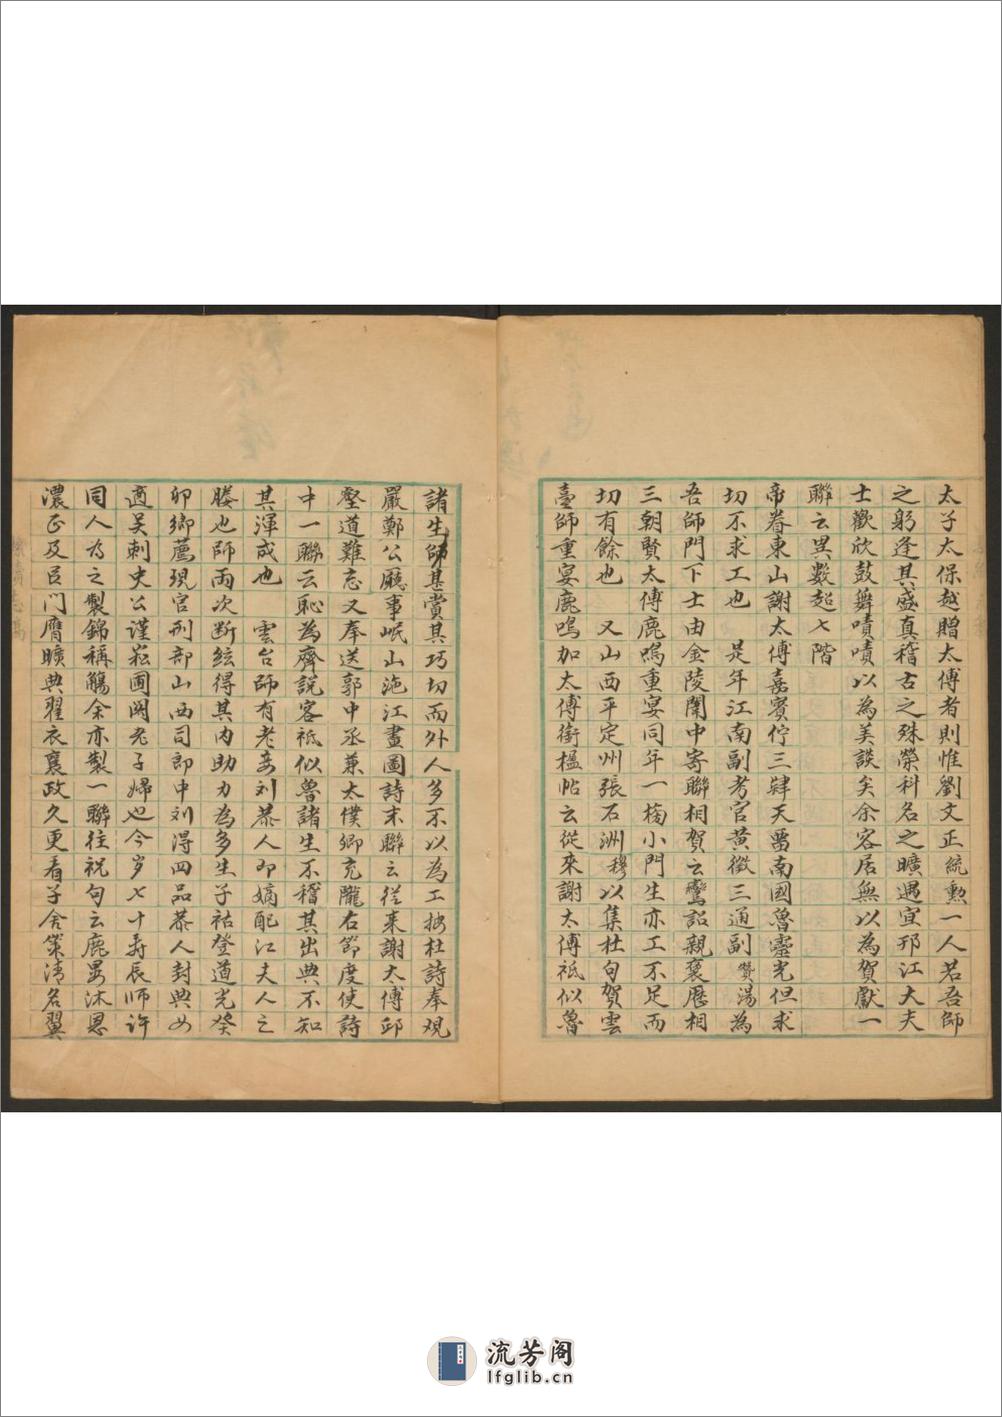 太子太保越贈太傅者則惟劉文正統勲一人若吾師
之躬逢其盛真稽古之殊榮科名之曠遇宜邗江大夫
士歡欣鼓舞嘖嘖以為美談矣余客居無以為賀獻一
聯云異數超七階
帝眷東山謝太傅嘉賓佇三肄天留南國魯靈光但求
切不求工也 是年江南副考官黃徵三通副贊湯為
吾師門下士由金陵闈中寄聯相賀云鸞詔親褒歷相
三朝賢太傅鹿鳴重宴同年一榜小門生亦工不足而
切有餘也 又山西平定州張石洲穆以集杜句賀雲
臺師重宴鹿鳴加太傅銜楹帖云從來謝太傅祗似魯
諸生師甚賞其巧切而外人多不以為工按杜詩奉觀
嚴鄭公廳事岷山沲江畫圖詩末聯云從來謝太傅邱
壑道難忘又奉送郭中丞兼太僕卿充隴右節度使詩
中一聯云恥為齊說客祗似魯諸生不稽其出典不知
其渾成也 雲台師有老妾刘恭人即嫡配江夫人之
媵也師兩次断絃得其内助力為多生子祜登道光癸
卯鄉薦現官刑部山西司郎中刘得四品恭人封典女
適吴刺史公謹菘圃閣老子婦也今岁七十寿辰師许
同人為之製錦稱觴余亦製一聯往祝句云鹿宴沐恩
濃正及吕门膺曠典翟衣襄政久更看子舍策清名翼
流芳阁
lfglib.cn